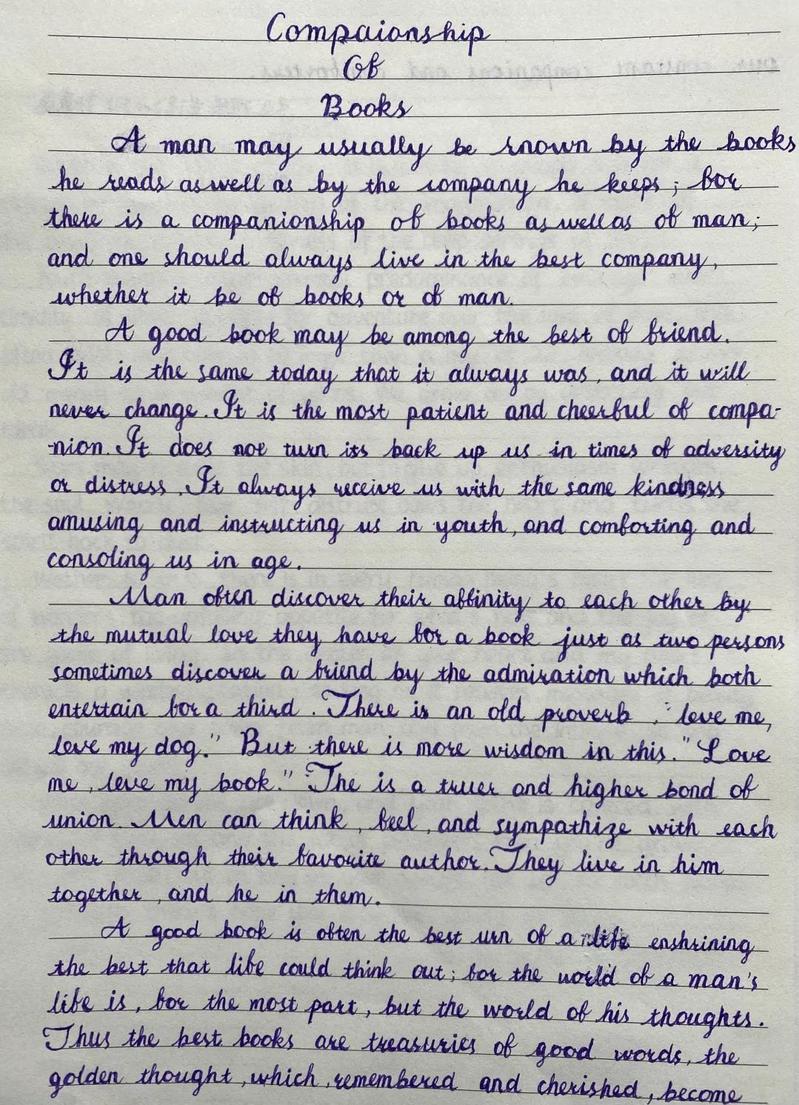 Compaionship
Of
Books
A man may usually be known by the books
he reads as well as by the company he keeps; for
there is a companionship of books as well as of man;
and one should always live in the best company,
whether it be of books or of man.
A good book may be among the best of friend.
It is the same today that it always was, and it will
never change. It is the most patient and cheerful of compa-
-nion. It does not turn its back up us in times of adversity
or distress. It always receive us with the same kindness
amusing and instructing us in youth, and comforting and
consoling us in age.
Man often discover their affinity to each other by
the mutual love they have for a book just as two persons
sometimes discover a friend by the admiration which both
entertain for a third. There is an old proverb, "love me,
love my dog." But there is more wisdom in this. "Love
me, love my book." The is a truer and higher bond of
union. Men can think, feel, and sympathize with each
other through their favorite author. They live in him
together, and he in them.
A good book is often the best urn of a life enshrining
the best that life could think out; for the world of a man's
life is, for the most part, but the world of his thoughts.
Thus the best books are treasuries of good words, the
golden thought, which, remembered and cherished, become